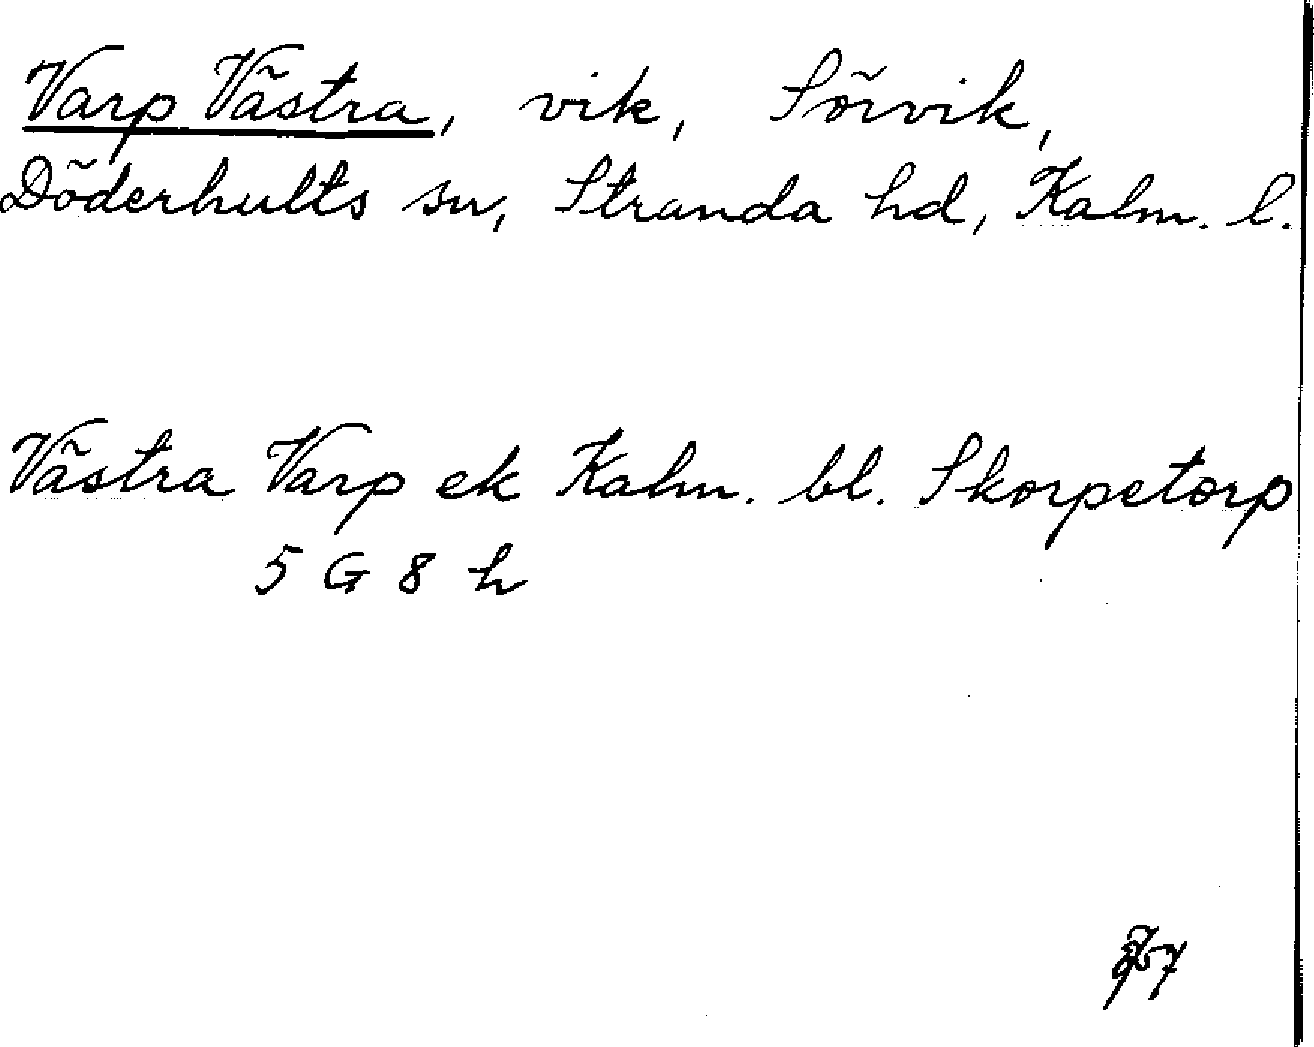 Varp Västra, vik, Sörvik,
Döderhults sn, Stranda hd, Kalm. l.
Västra Varp ek Kalm. bl. Skorpetorp
5 G 8 h